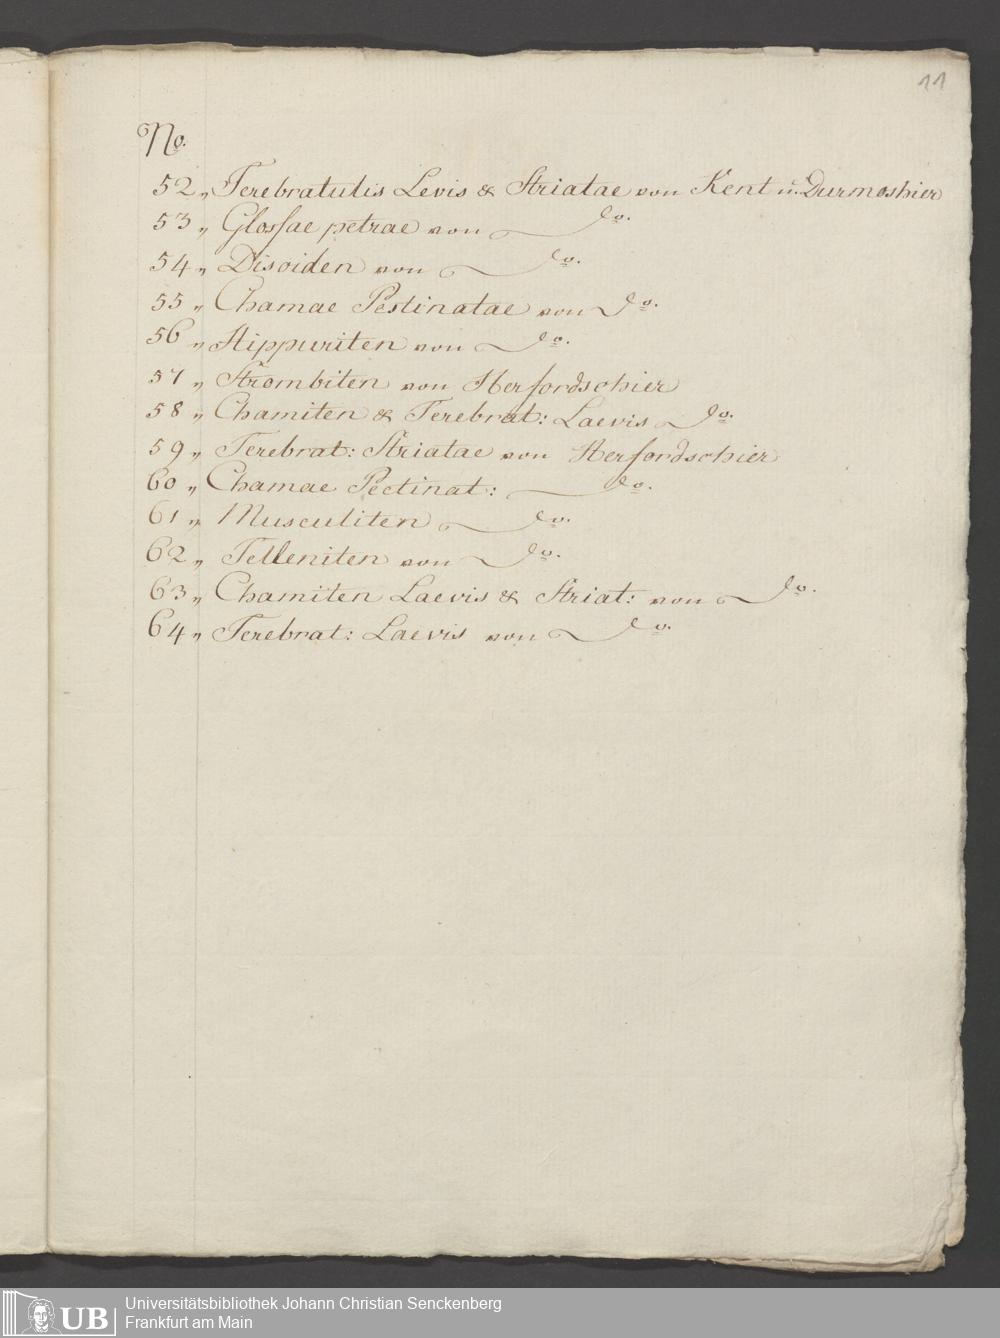 11
No.
52 „ Terebratulis Levis & Striatae von Kent u. Durmoshier
53 „ Glossae petrae von do.
54 „ Disoiden von do.
55 „ Chamae Pestinatae von do.
56 „ Hippuriten von do.
57 „ Strombiten von Herfordschier
58 „ Chamiten & Terebrat: Laevis do.
59 „ Terebrat: Striatae von Herfordschier
60 „ Chamae Pectinat: do.
61 „ Musculiten do.
62 „ Telleniten von do.
63 „ Chamiten Laevis & Striat: von do.
64 „ Terebrat: Laevis von do.
UB
Universitätsbibliothek Johann Christian Senckenberg
Frankfurt am Main